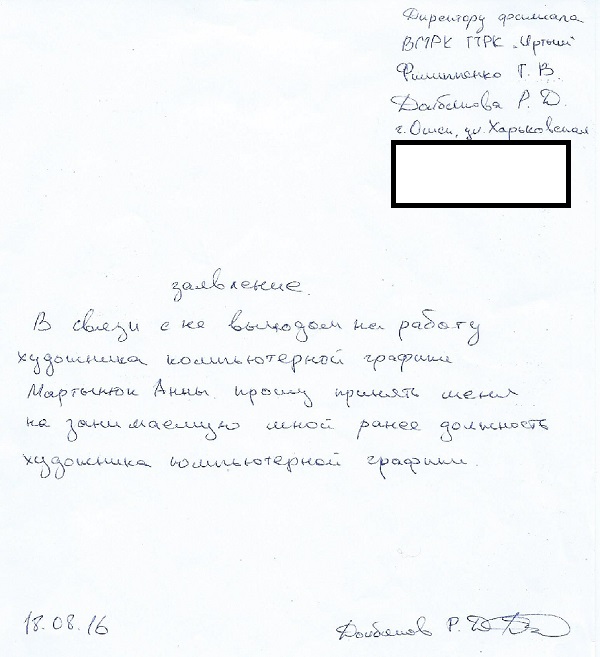 Директору филиала
ВГТРК ГТРК „Иртыш"
Филипенко Г. В.
Р. Д.
г. Омск, ул. Харьковская
заявление.
В связи с не выходом на работу
художника компьютерной графики
Мартынюк Анны прошу принять меня
на занимаемую мной ранее должность
художника компьютерной графики.
18.08.16
Р. Д